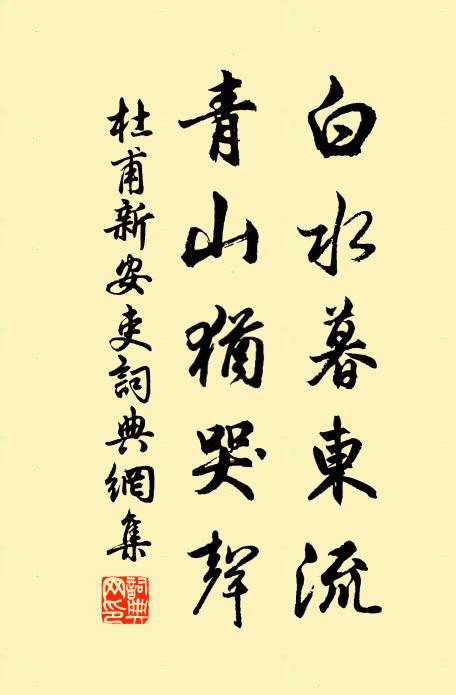 白水暮東流
青山猶哭聲
杜甫新安吏詞典網集
詞典網印